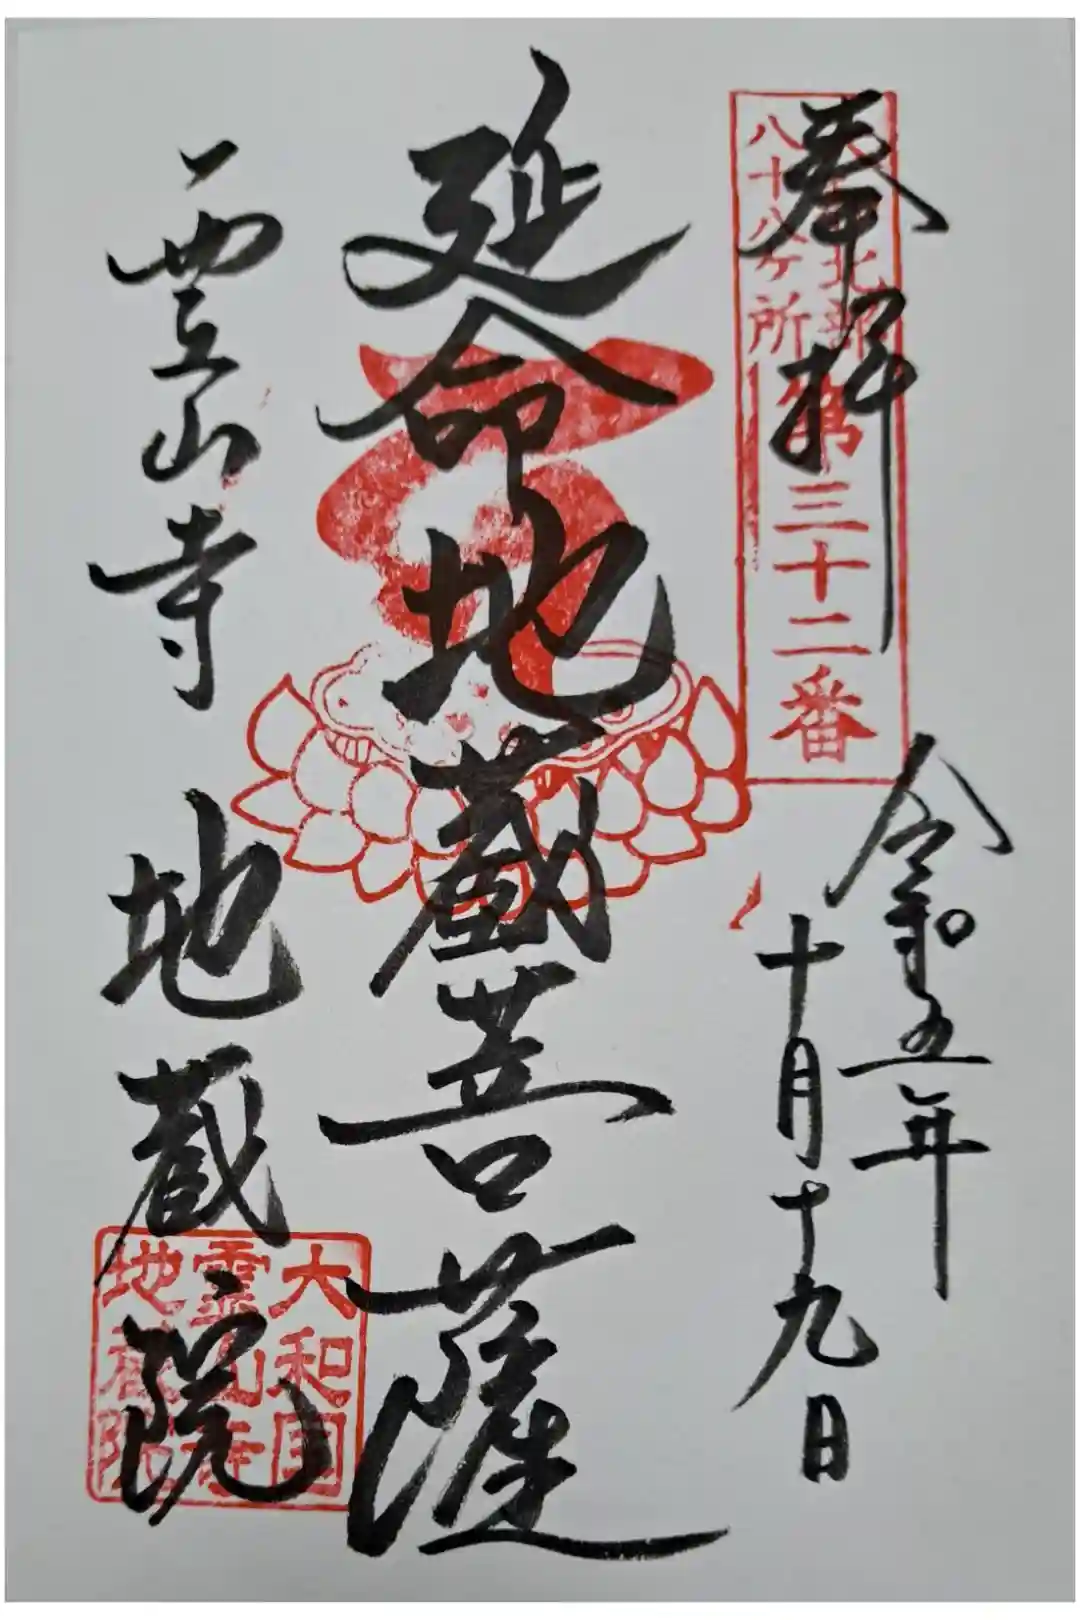 奉拝
八十八ヶ所
北部
第三十二番
令和五年
十月十九日
延命地蔵菩薩
霊山寺
地蔵院
大和国
霊山寺
地蔵院